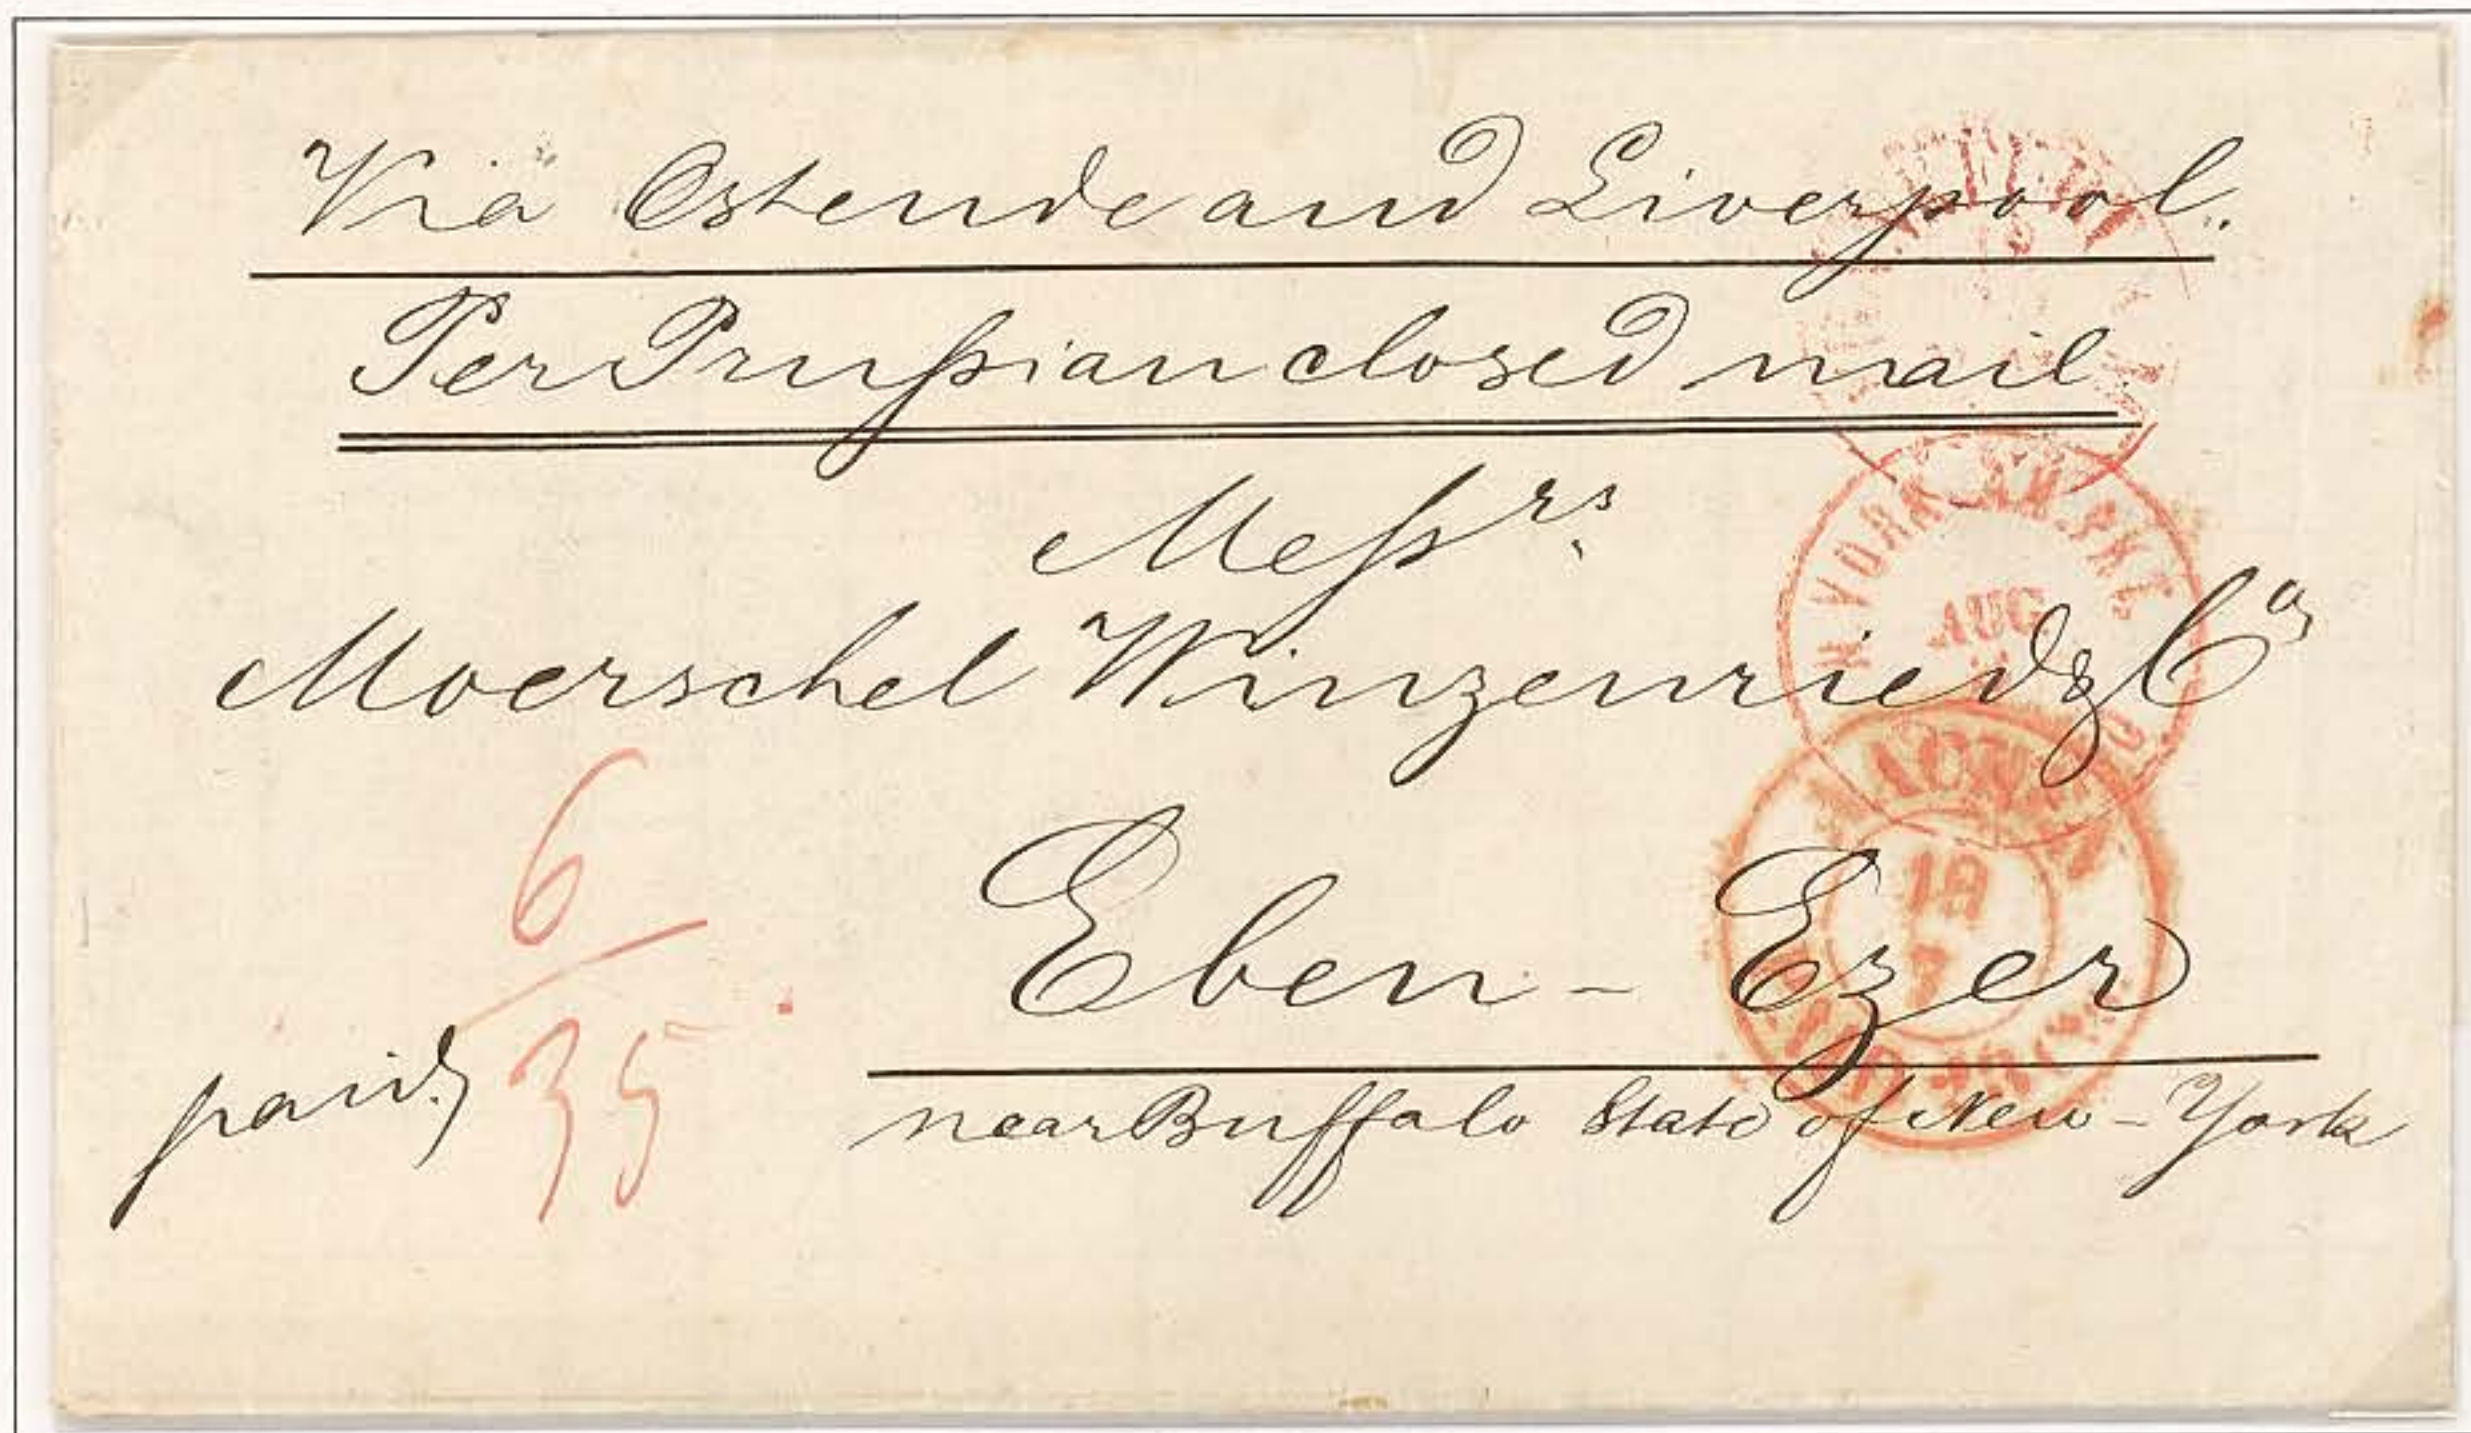 Via Ostende and Liverpool.
Per Prußian closed mail.
Meßrs.
Moerschel Winzenried & Co
Eben-Ezer
near Buffalo State of New-York
paid.
6
35
N. YORK AM. PKT.
AUG
AACHEN
19
7